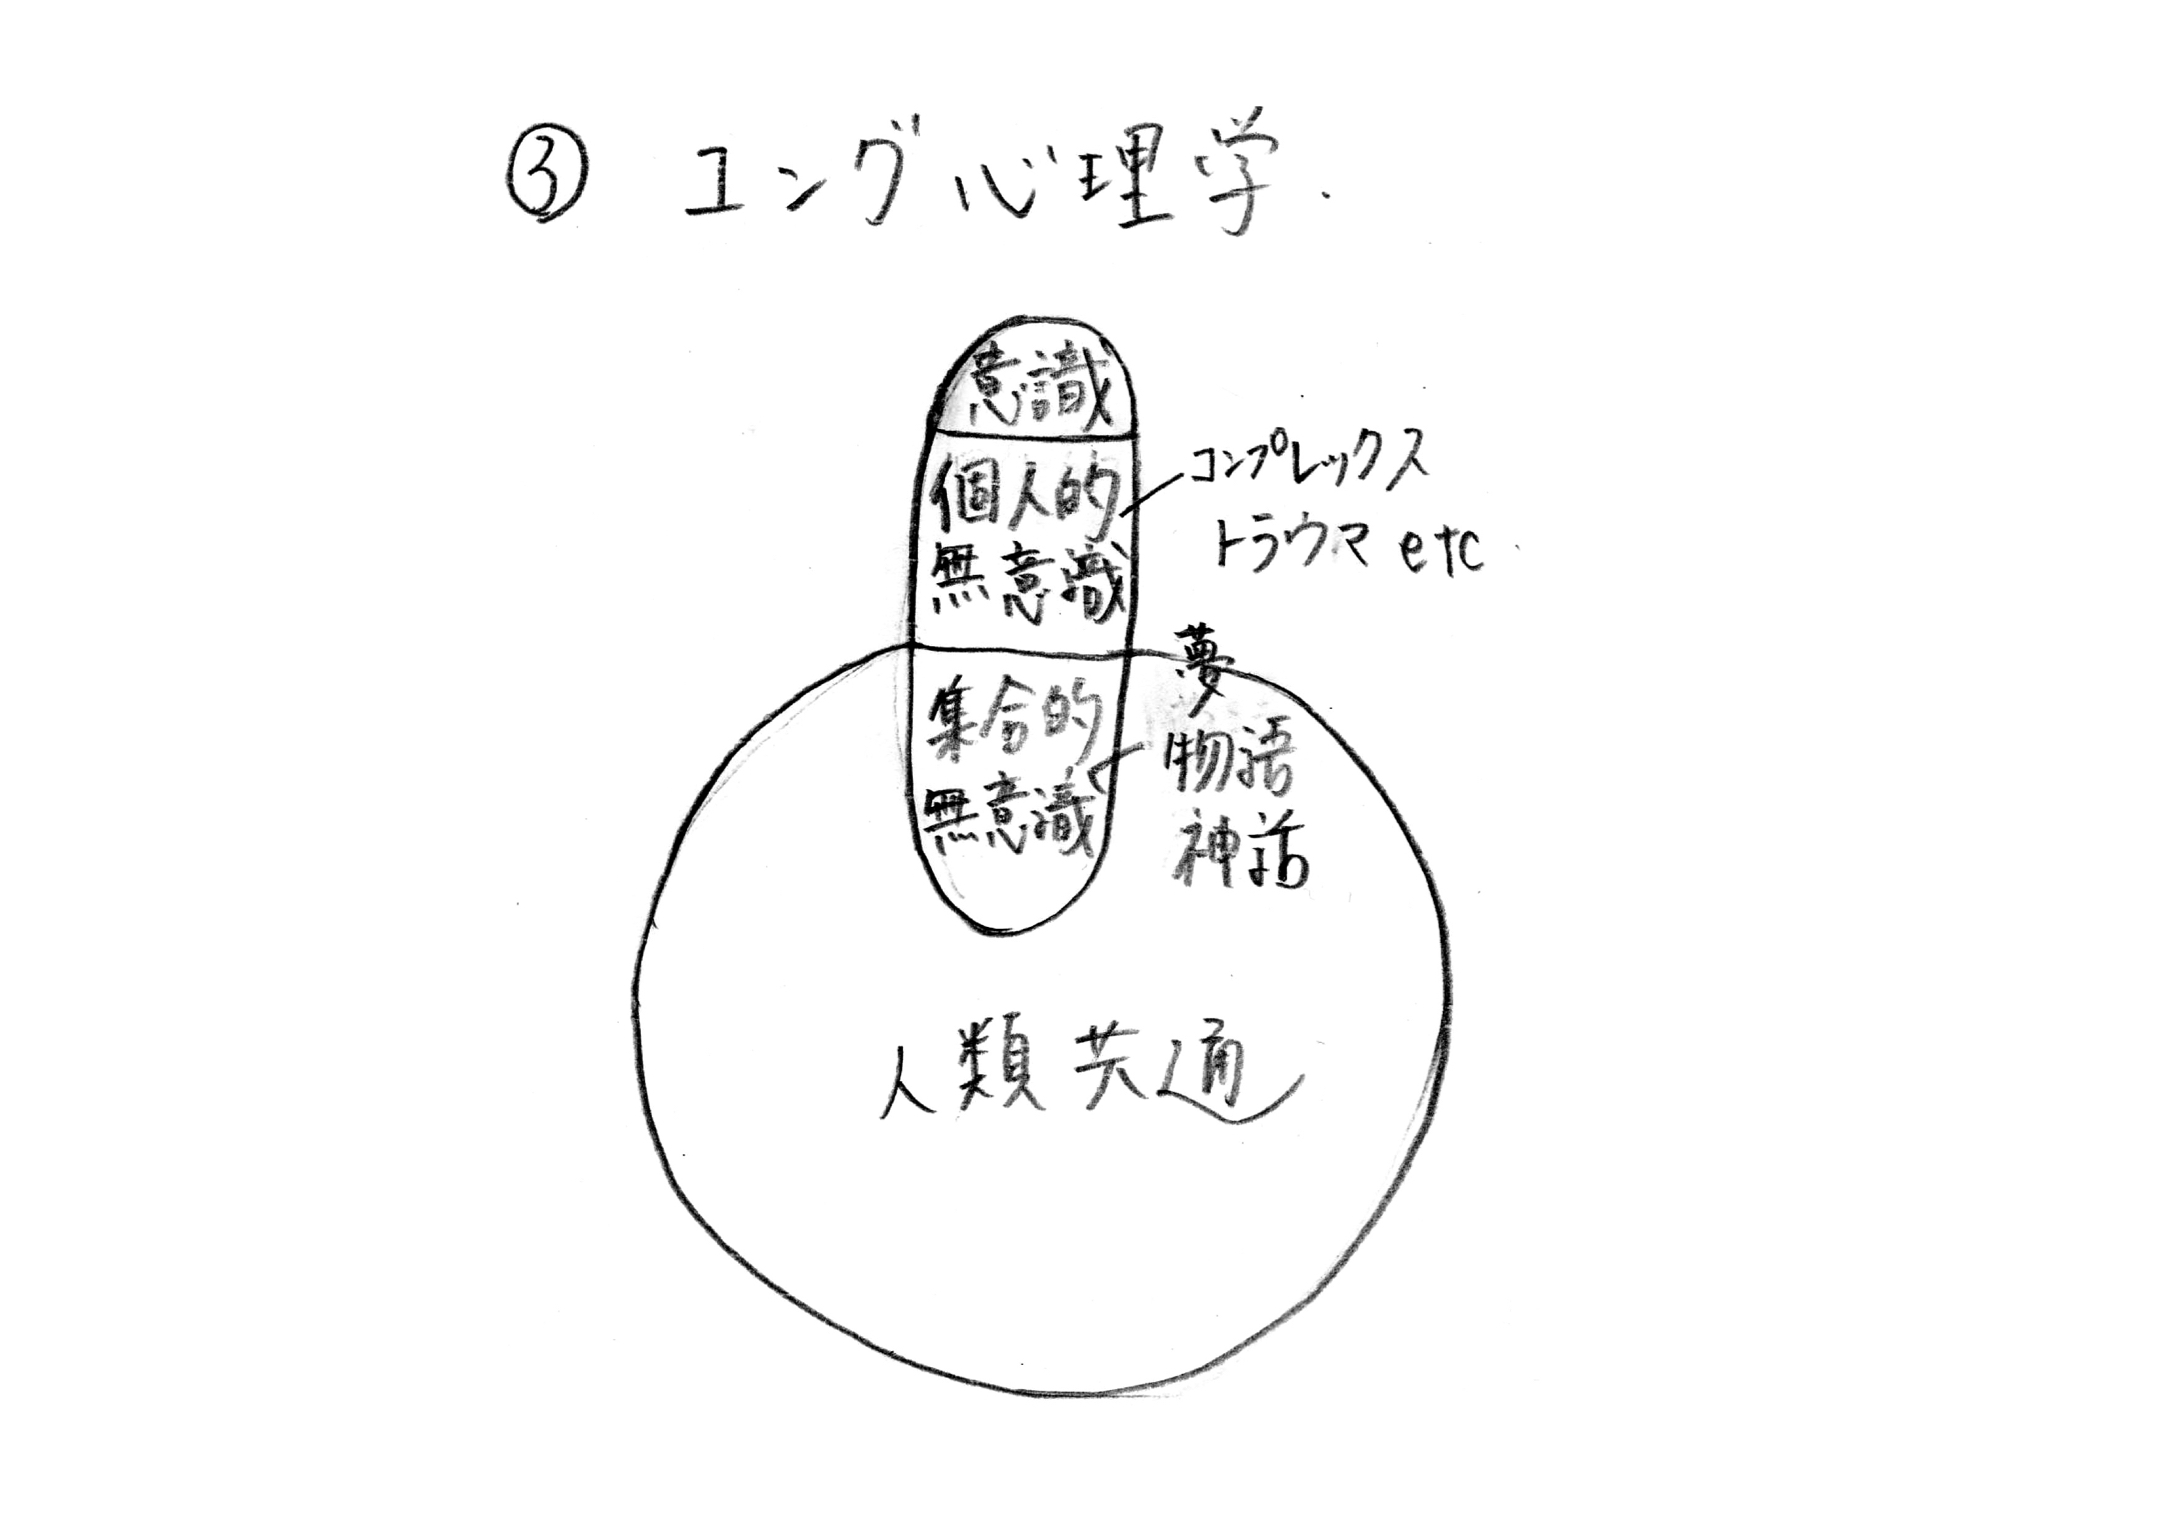 ③ ユング心理学.
意識
個人的
無意識
コンプレックス
トラウマ etc.
集合的
無意識
夢
物語
神話
人類共通